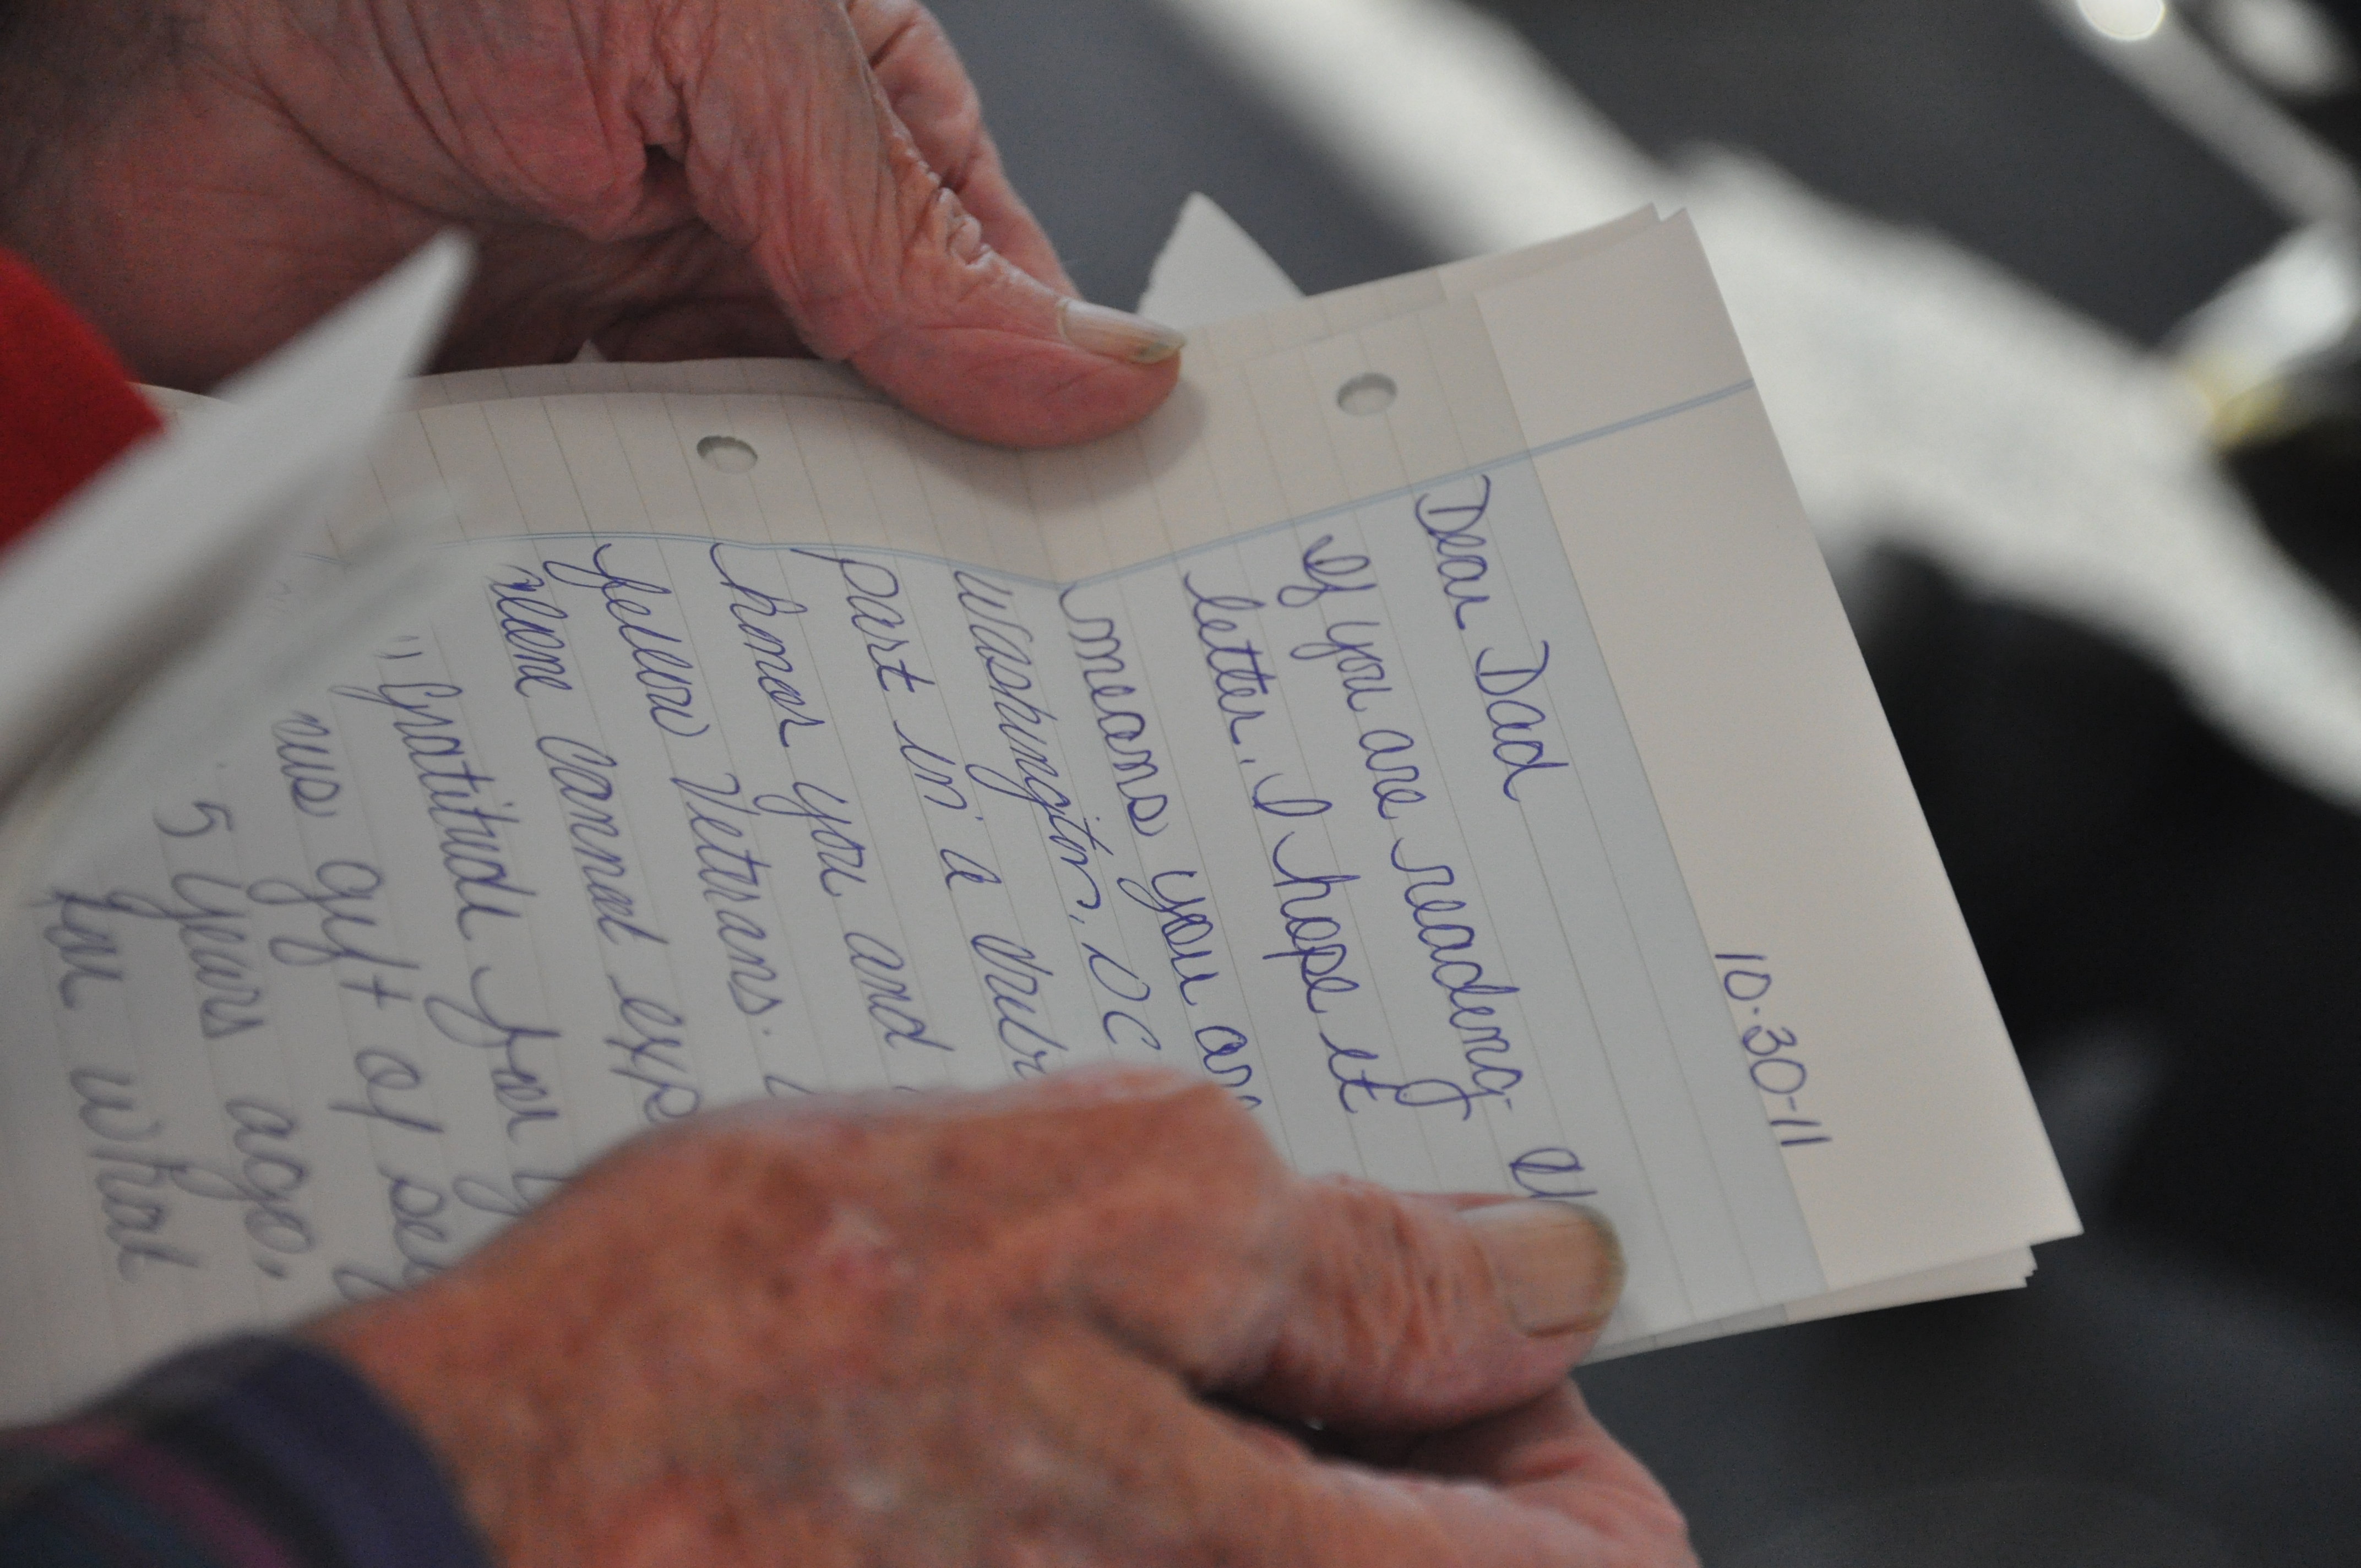 10-30-11
Dear Dad
If you are reading
letter. I hope it
means you are
Washington, DC
part in a
honor you and
fellow Veterans.
alone cannot
"Gratitude for
gift of
5 years ago,
for what